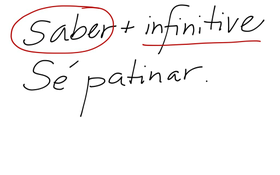 Saber + infinitive
Sé patinar.